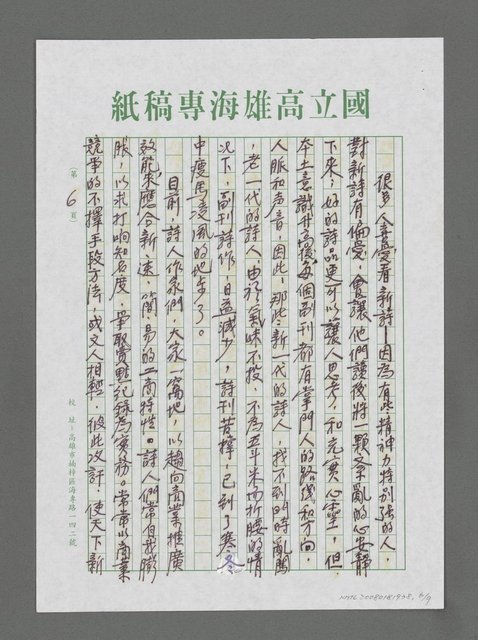 國立高雄海專稿紙
很多人喜愛看新詩—因為有些精神力特別強的人，
對新詩有偏愛，會讓他們讀後將一顆紊亂的心安靜
下來；好的詩品更可以讓人思考，和充實心靈，但
本土意識升高後每個副刊都有掌門人的路線和方向，
人脈和聲音，因此，那些新一代的詩人，找不到的時亂闖
，老一代的詩人，由於氣味不投，不為五斗米而折腰的情
況下，副刊詩作，日益減少，詩刊苦撐，已到了寒冬
中瘦馬凌風的地步了。
目前，詩人作家們，大家一窩地，以趨向商業推廣
效能來應合新、速、簡易的工商特性。詩人們常自我膨
脹，以求打响知名度，爭取實點紀錄為實務。常常以商業
競爭的不擇手段方法，或文人相輕，彼此攻訐，使天下新
（第6頁）
校址：高雄市楠梓區海專路一四二號
NMTL20080181938, 6/9